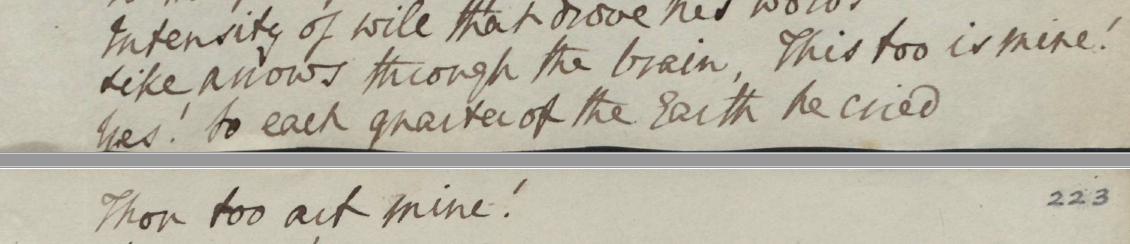 Intensity of will that drove his words
Like arrows through the brain, This too is mine!
Yes! to each quarter of the Earth he cried
Thou too art mine!
223